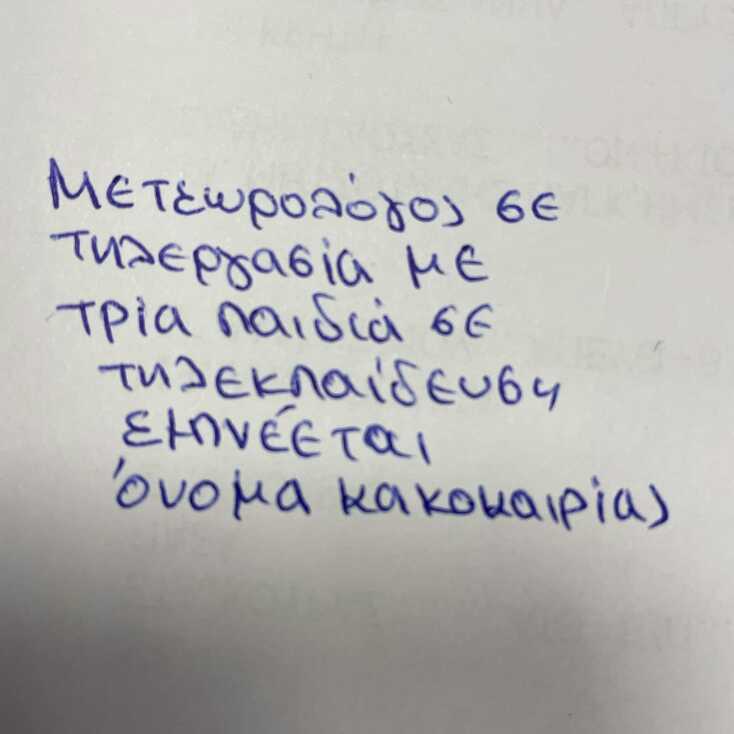 Μετεωρολόγος σε
τηλεργασία με
τρία παιδιά σε
τηλεκπαίδευση
εμπνέεται
όνομα κακοκαιρίας